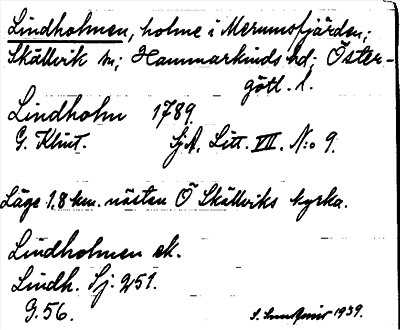 Lindholmen, holme i Merumsfjärden;
Skällvik sn; Hammarkinds hd; Öster-
götl. l.
Lindholm 1789.
G. Klint. SjA. Litt. VII. N:o 9.
Läge 1.8 km. nästan Ö Skällviks kyrka.
Lindholmen ek.
Lindh. Sj. 251.
G. 56.
1939.